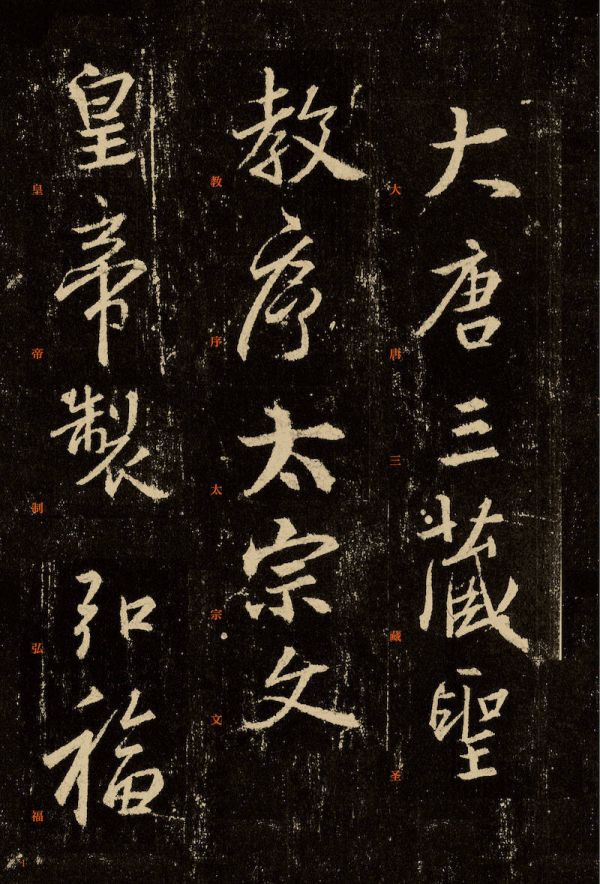 大唐三藏聖
教序太宗文
皇帝製弘福
大
唐
三
藏
圣
教
序
太
宗
文
皇
帝
制
弘
福